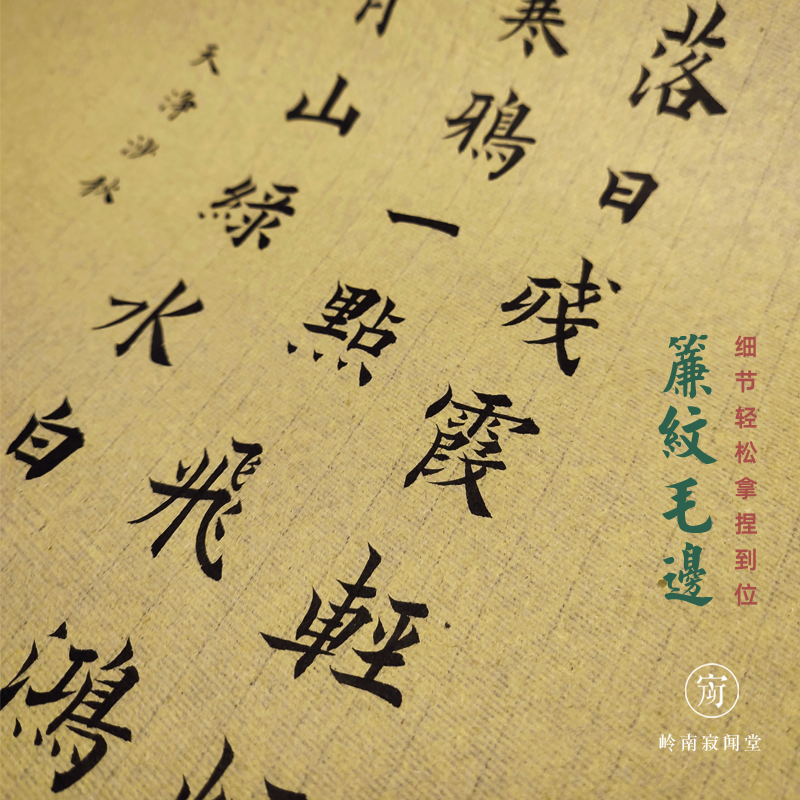 落日残霞輕
寒鴉一點飛鴻
山綠水白
天淨沙秋
細节轻松拿捏到位
簾紋毛邊
岭南寂闻堂